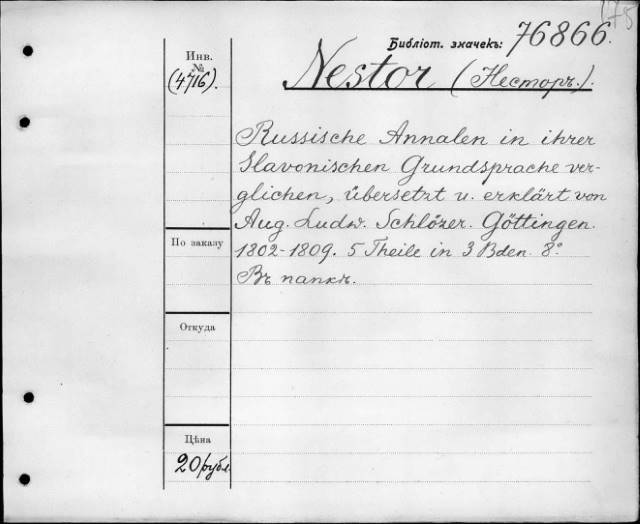 Библіот. значекъ: 76866.
Инв. №
(4716).
Nestor (Несторъ.).
Russische Annalen in ihrer
Slavonischen Grundsprache ver-
glichen, übersetzt u. erklärt von
Aug. Ludw. Schlözer. Göttingen.
1802-1809. 5 Theile in 3 Bden. 8°.
Въ папкѣ.
По заказу
Откуда
Цѣна
20 рубл.